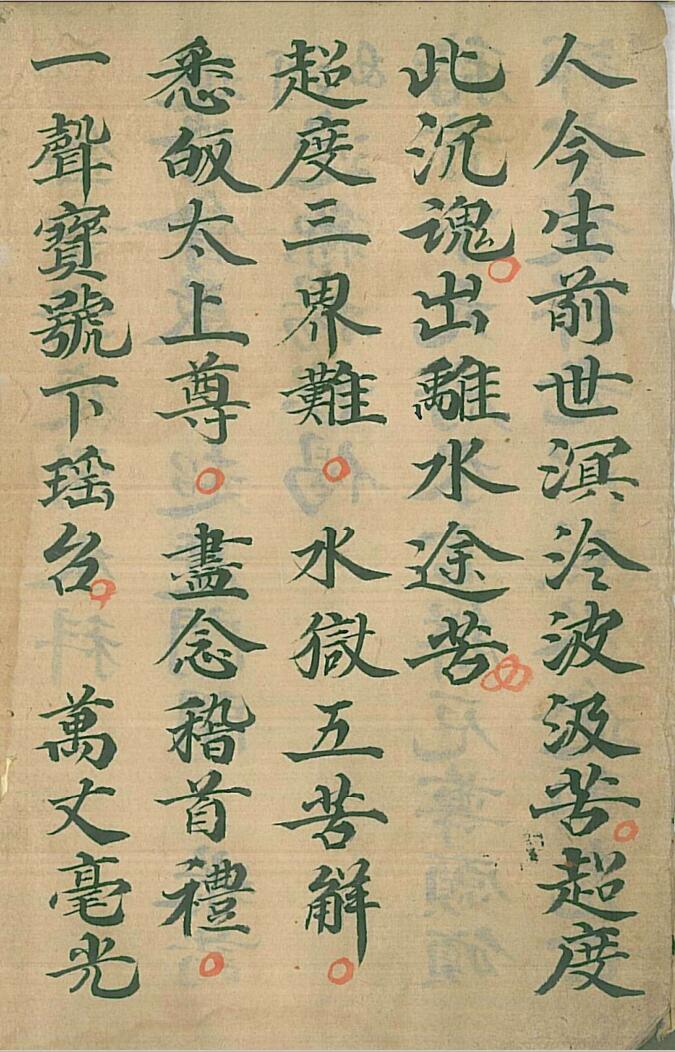 人今生前世溟泠波汲苦超度
此沉魂出離水途苦
超度三界難水獄五苦解
悉皈太上尊盡念稽首禮
一聲寶號下瑶台萬丈毫光